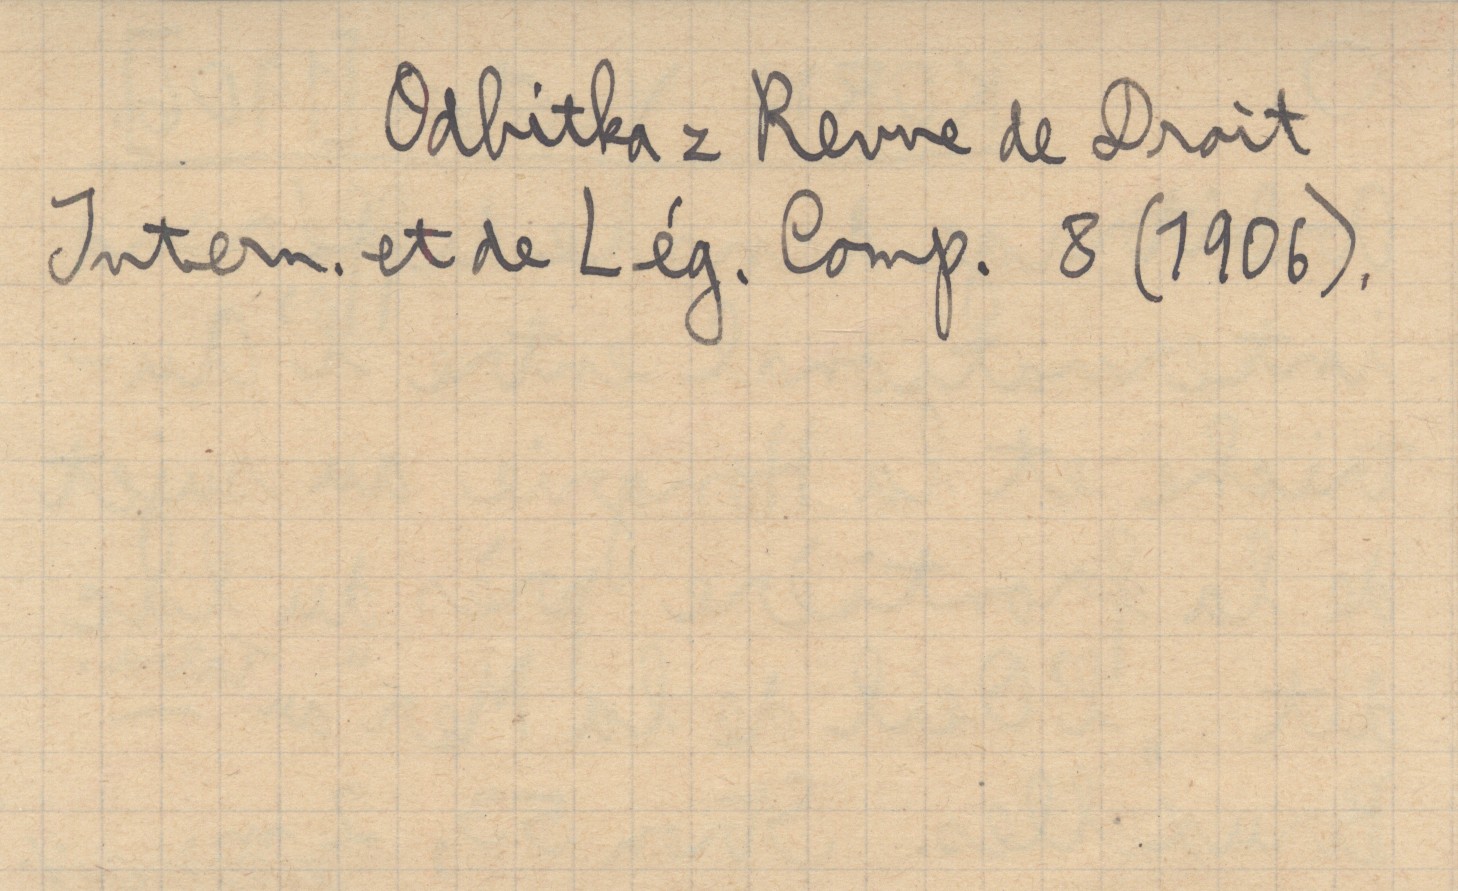 Odbitka z Revue de Droit
Intern. et de Lég. Comp. 8 (1906).